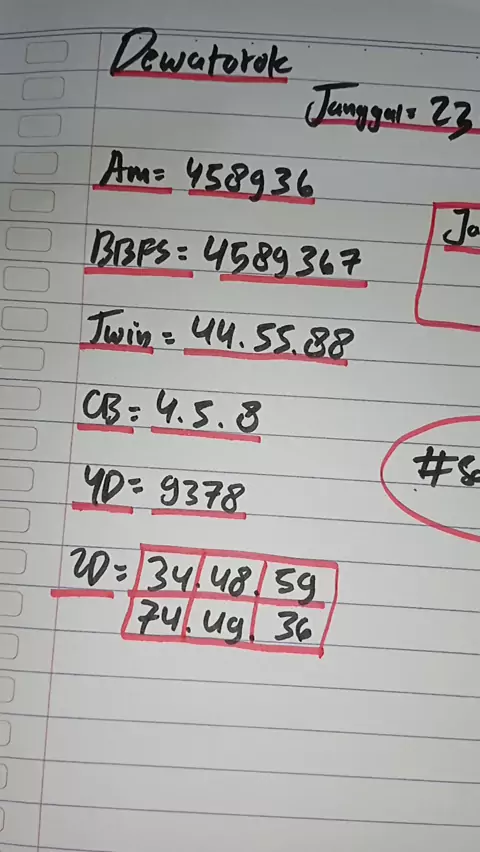 Dewatorok
Tanggal= 23
Am= 458936
BBFS= 4589367
Ja
Twin= 44.55.88
CB= 4.5.8
#So
4D= 9378
2D= 34.48.59
74.49.36